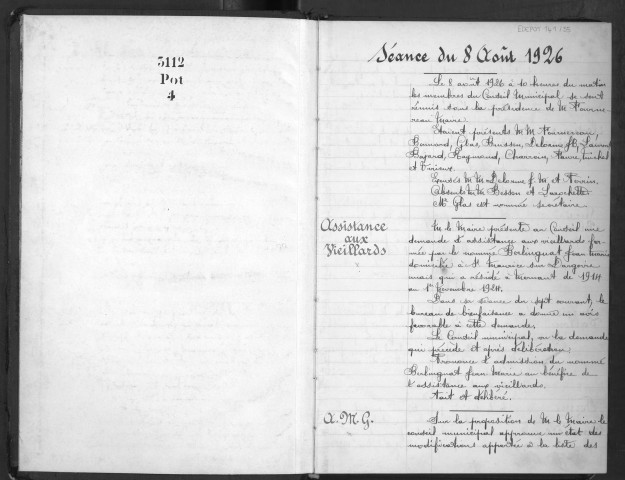 3112
Pot
4
Séance du 8 Août 1926
Le 8 août 1926 à 10 heures du matin
les membres du Conseil Municipal se sont
réunis sous la présidence de M
Maire
Etaient présents M M
Bonnard, Glas, Delorme
Bajard, Raymond, Charvin, Favre,
et
Excusés M M Delorme J. M. et
Absents M M Besson et
Mr Glas est nommé secrétaire
Assistance
aux
Vieillards
M le Maire présente au Conseil une
demande d'assistance aux vieillards for-
mée par le nommé Berlinguat Jean Marie
domicilié à St Maurice sur Dargoire
mais qui a résidé à Mornant de 1914
au 1er Novembre 1924.
Dans sa séance du sept courant, le
bureau de bienfaisance a donné un avis
favorable à cette demande,
Le Conseil municipal, vu la demande
qui précède et après délibération
Prononce l'admission du nommé
Berlinguat Jean Marie au bénéfice de
l'assistance aux vieillards.
Fait et délibéré.
A. M. G.
Sur la proposition de M le Maire le
conseil municipal approuve un état des
modifications apportée à la liste des